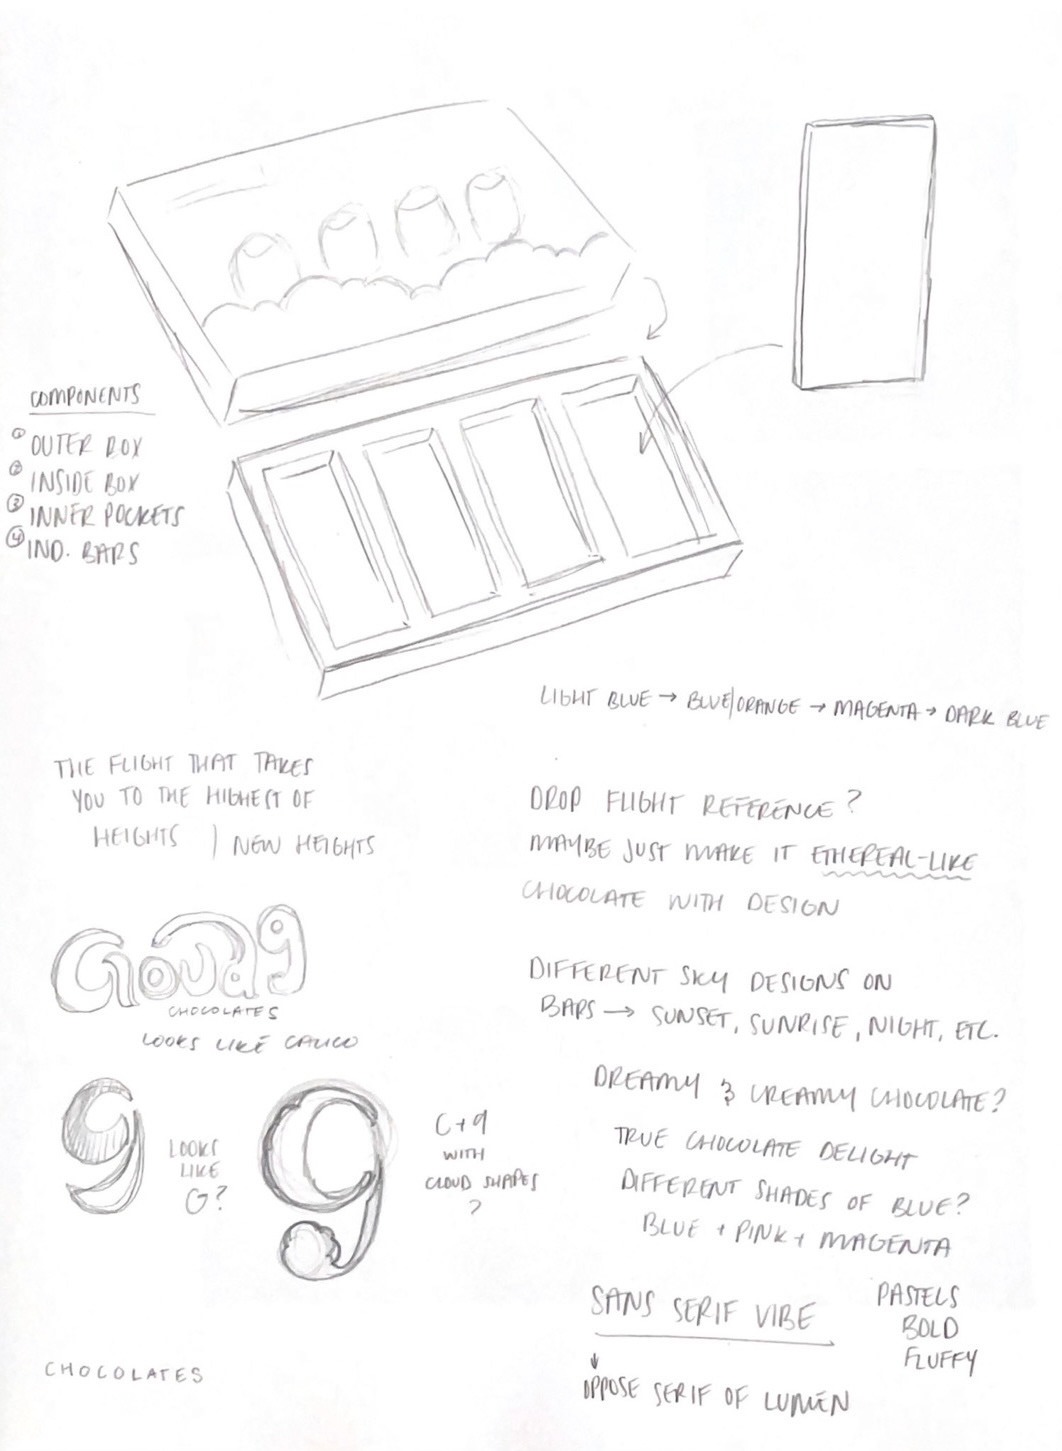 COMPONENTS
① OUTER BOX
② INSIDE BOX
③ INNER POCKETS
④ IND. BARS
LIGHT BLUE → BLUE/ORANGE → MAGENTA → DARK BLUE
THE FLIGHT THAT TAKES
YOU TO THE HIGHEST OF
HEIGHTS / NEW HEIGHTS
DROP FLIGHT REFERENCE?
MAYBE JUST MAKE IT ETHEREAL-LIKE
CHOCOLATE WITH DESIGN
CHOCOLATES
LOOKS LIKE CALICO
DIFFERENT SKY DESIGNS ON
BARS → SUNSET, SUNRISE, NIGHT, ETC.
9
LOOKS
LIKE
G?
C9
C+9
WITH
CLOUD SHAPES
?
DREAMY & CREAMY CHOCOLATE?
TRUE CHOCOLATE DELIGHT
DIFFERENT SHADES OF BLUE?
BLUE + PINK + MAGENTA
SANS SERIF VIBE
↓
OPPOSE SERIF OF LUMEN
PASTELS
BOLD
FLUFFY
CHOCOLATES